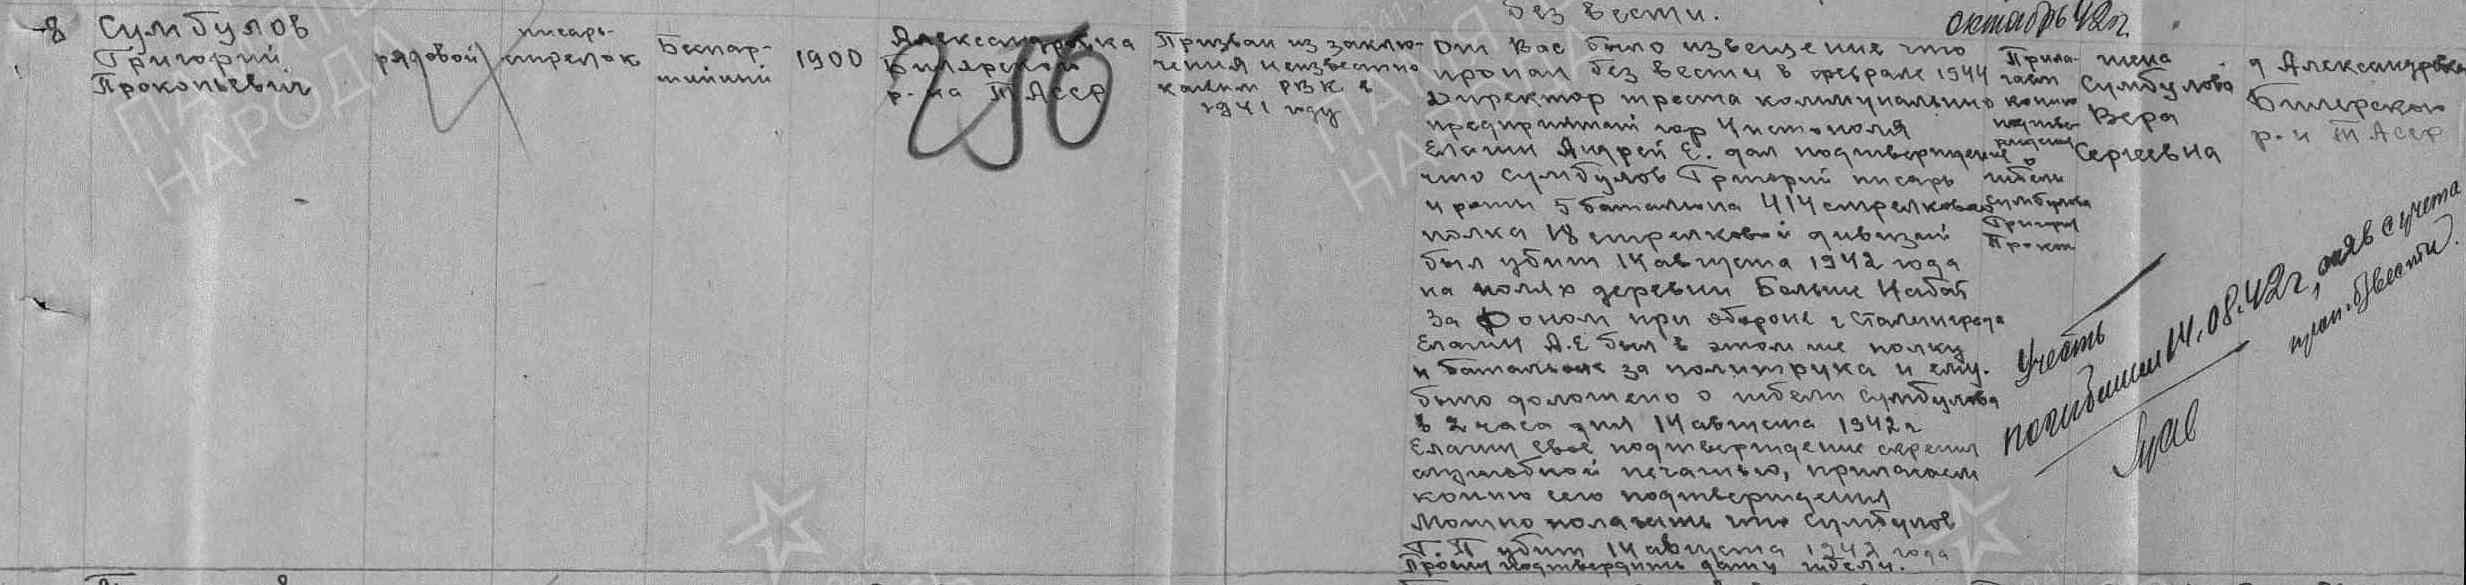 без вести.
октябрь 42 г.
8
Сумбулов
Григорий
Прокопьевич
рядовой
писарь-
стрелок
Беспар-
тийный
1900
Александровка
Билярского
р-на ТАССР
Призван из заклю-
чения неизвестно
каким РВК в
1941 году
От Вас было извещение что
пропал без вести в феврале 1944
Директор треста коммунально
предприятий гор Чистополя
Елагин Андрей Е. дал подтверждение
что Сумбулов Григорий писарь
и роты 5 батальона 414 стрелковой
полка 18 стрелковой дивизии
был убит 14 августа 1942 года
на полях деревни Больше Набат
за Доном при обороне г Сталинграда
Елагин А.Е был в этом же полку
и батальоне за политрука и ему
было доложено о гибели Сумбулова
в 2 часа дня 14 августа 1942 г
Елагин свое подтверждение скрепил
служебной печатью, прилагаем
копию его подтверждения
Можно полагать что Сумбулов
Г. П убит 14 августа 1942 года
Просим подтвердить дату гибели.
Прила-
гаем
копию
подтвер
ждения
о
гибели
Сумбулова
Григор
Прокоп
жена
Сумбулова
Вера
Сергеевна
д Александровка
Билярского
р-н ТАССР
Учесть
погибшим 14.08.42 г, сняв с учета
проп. б/вести.
ПАМЯТЬ
НАРОДА
ПАМЯТЬ
НАРОДА